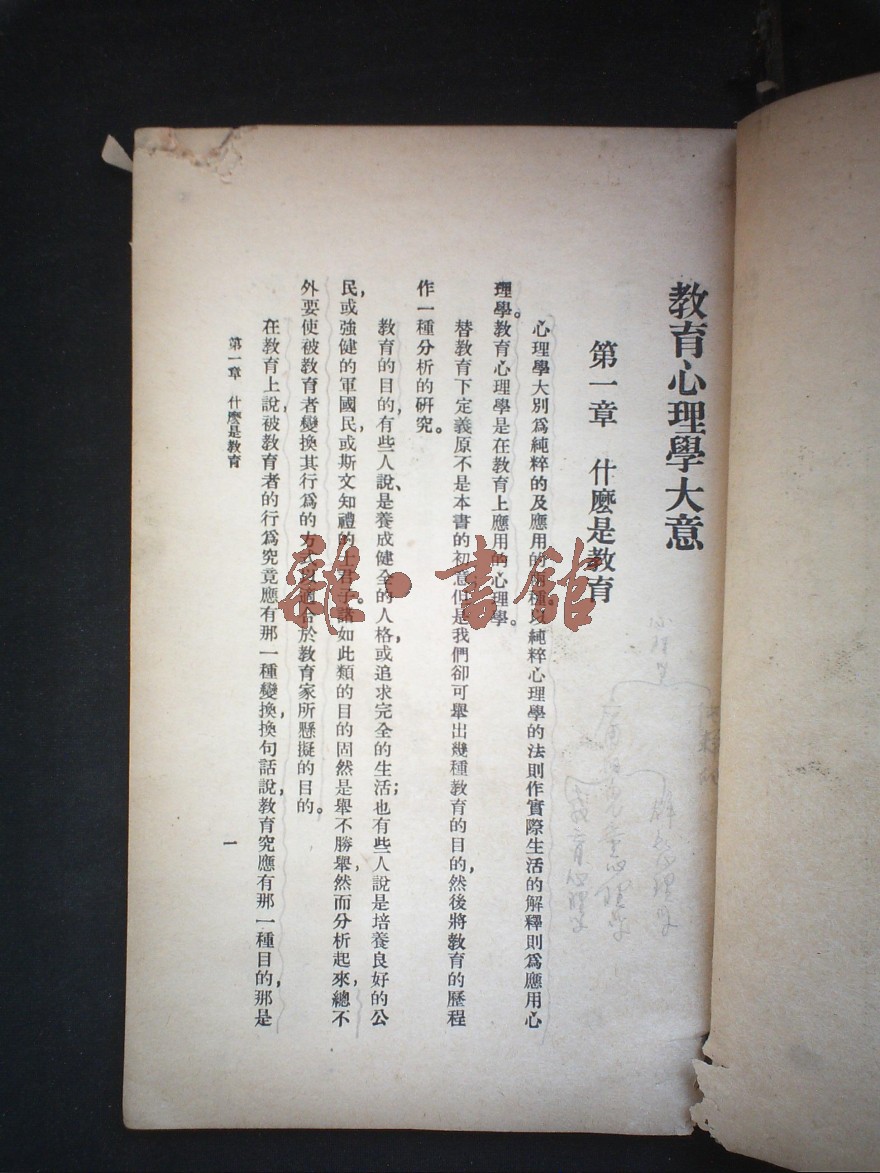 教育心理學大意
第一章　什麽是教育
心理學大別爲純粹的及應用的兩種以純粹心理學的法則作實際生活的解釋則爲應用心
理學。教育心理學是在教育上應用的心理學。
替教育下定義原不是本書的初意但是我們卻可舉出幾種教育的目的，然後將教育的歷程
作一種分析的研究。
教育的目的，有些人說、是養成健全的人格，或追求完全的生活；也有些人說是培養良好的公
民，或強健的軍國民，或斯文知禮的士君子。諸如此類的目的固然是舉不勝舉，然而分析起來，總不
外要使被教育者變換其行爲的方式以適合於教育家所懸擬的目的。
在教育上說，被教育者的行爲究竟應有那一種變換，換句話說，教育究應有那一種目的，那是
第一章　什麽是教育
一
雜·書館
心理學
教育心理學